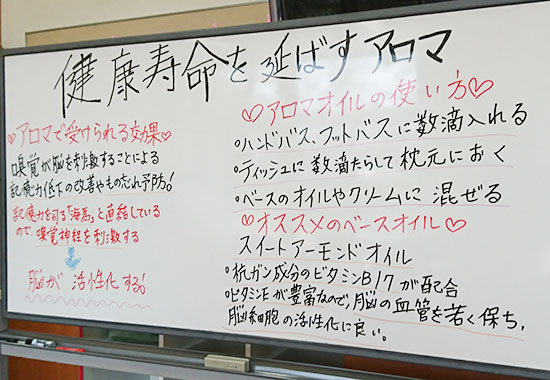 健康寿命を延ばすアロマ
♡アロマで受けられる効果♡
嗅覚が脳を刺激することによる
記憶力低下の改善やもの忘れ予防!
記憶力を司る「海馬」と直結している
ので、嗅覚神経を刺激する
脳が活性化する!
♡アロマオイルの使い方♡
・ハンドバス、フットバスに数滴入れる
・ティッシュに数滴たらして枕元におく
・ベースのオイルやクリームに混ぜる
♡オススメのベースオイル♡
スイートアーモンドオイル
・抗ガン成分のビタミンB17が配合
・ビタミンEが豊富なので、脳の血管を若く保ち、
脳細胞の活性化に良い。